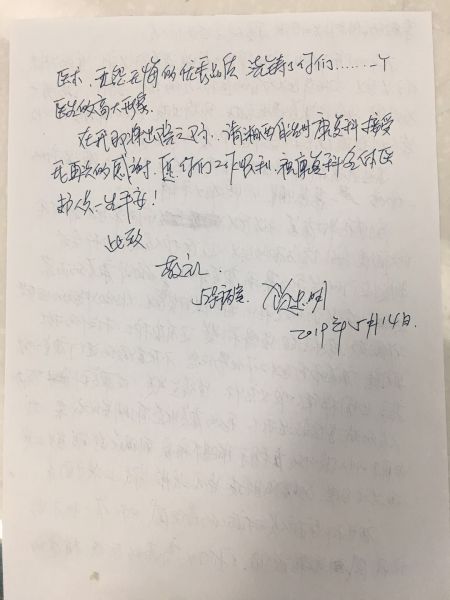 医术，无怨无悔的优秀品质 浇铸了你们……一个
医生的高大形象。
在我即将出院之际，请湘西自治州康复科接受
我再次的感谢，愿你们工作顺利，祝康复科全体医
护人员一生平安！
此致
敬礼
2019年5月14日.